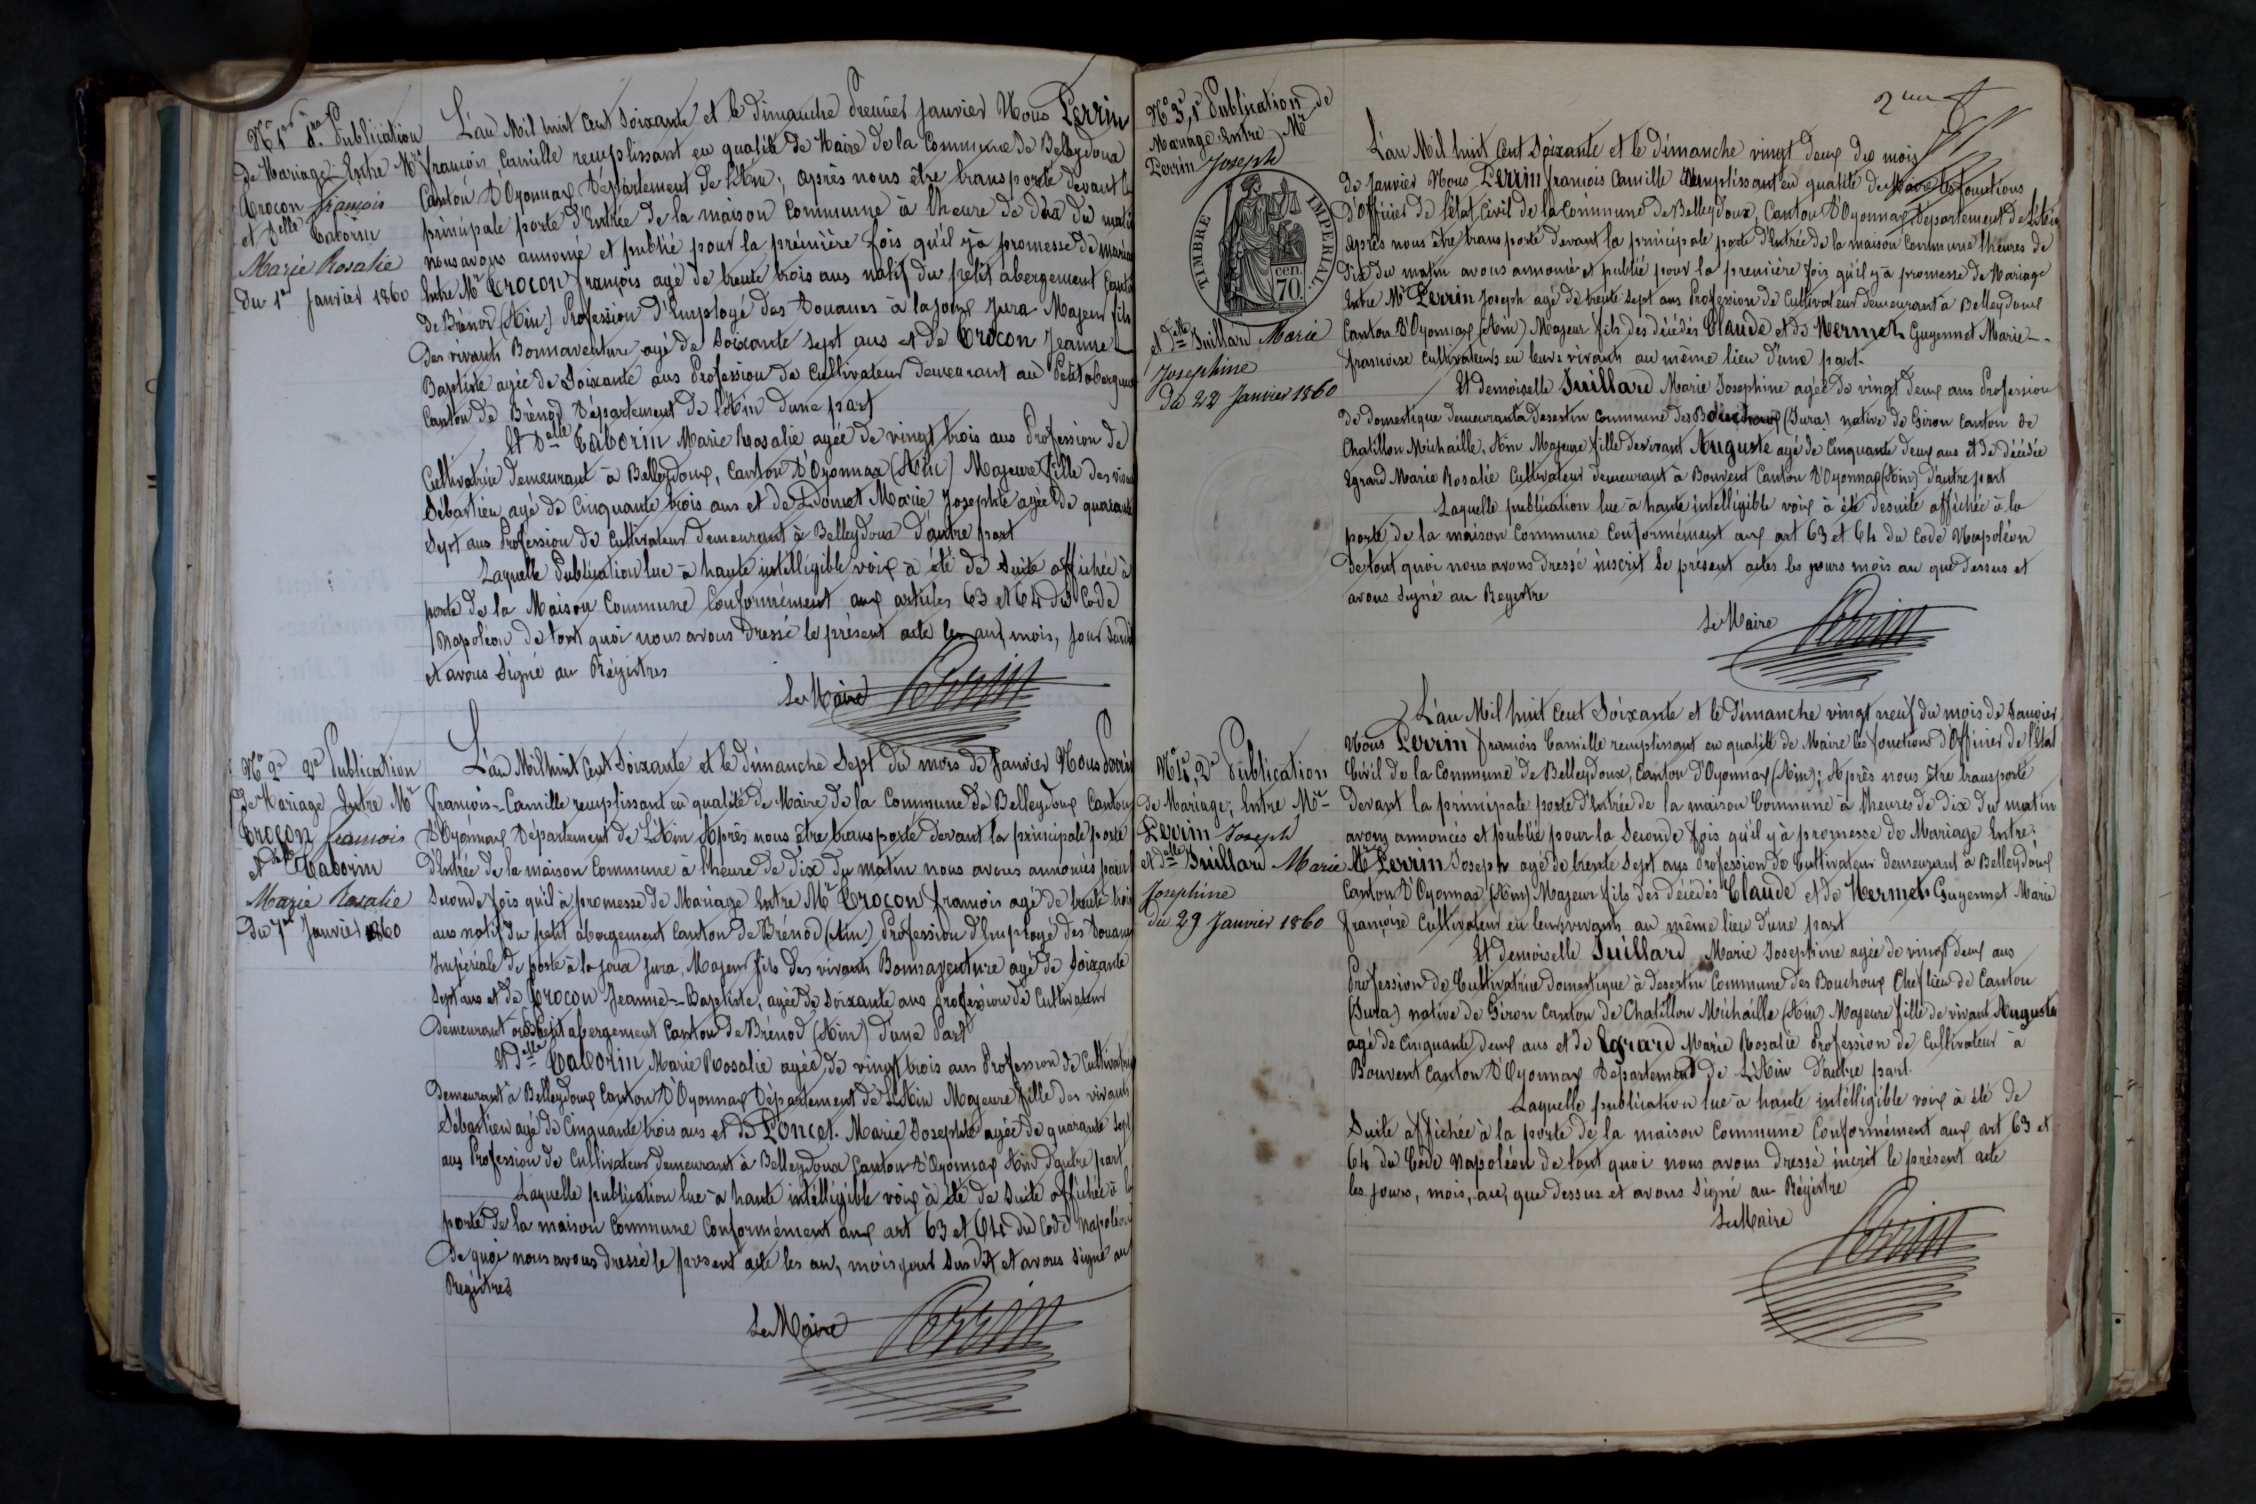 No 1er 1re Publication
de Mariage Entre Mr
Crocon françois
et Delle Taborin
Marie Rosalie
du 1er Janvier 1860
L'an Mil huit Cent Soixante et le dimanche Premier Janvier Nous Perrin
françois Camille remplissant en qualité de Maire de la Commune de Belleydoux
Canton d'Oyonnax Département de l'Ain, après nous être transporté devant la
principale porte d'Entrée de la maison Commune à l'heure de dix du matin
nous avons annoncé et publié pour la prémière fois qu'il y à promesse de mariage
Entre Mr Crocon françois agé de trente trois ans natif du petit abergement Canton
de Brénod (Ain) Profession d'Employé des Douanes à la Joux Jura Majeur fils
des vivants Bonnaventure agé de Soixante Sept ans et de Crocon Jeanne
Baptiste agée de Soixante ans Profession de Cultivateur demeurant au Petit abergement
Canton de Brénod Département de l'Ain d'une part
Et Delle Taborin Marie Rosalie agée de vingt trois ans Profession de
Cultivatrice demeurant à Belleydoux, Canton d'Oyonnax (Ain) Majeure fille des vivants
Sébastien agé de Cinquante trois ans et de Poncet Marie Josephte agée de quarante
Sept ans Profession de Cultivateur demeurant à Belleydoux d'autre part
Laquelle Publication lue à haute intelligible voix à été de Suite affichée à
porte de la Maison Commune Conformément aux articles 63 et 64 du Code
Napoléon de tout quoi nous avons dressé le présent acte les an, mois, jour Susdit
et avons Signé au Régistres
Le Maire Perrin
No 2e 2e Publication
de Mariage Entre Mr
Crocon françois
et Delle Taborin
Marie Rosalie
du 7me Janvier 1860
L'an Mil huit Cent Soixante et le dimanche Sept du mois de Janvier Nous Perrin
françois-Camille remplissant en qualité de Maire de la Commune de Belleydoux Canton
d'Oyonnax Département de L'Ain Après nous être transporté devant la principale porte
d'Entrée de la maison Commune à l'heure de dix du matin nous avons annoncés pour
Seconde fois qu'il à promesse de Mariage Entre Mr Crocon françois agé de trente trois
ans natif du petit abergement Canton de Brénod (Ain) Profession d'Employé des Douanes
Impériale de poste à la Joux Jura, Majeur fils des vivants Bonnaventure agé de Soixante
Sept ans et de Crocon Jeanne-Baptiste, agée de Soixante ans Profession de Cultivateur
demeurant au Petit abergement Canton de Brénod (Ain) d'une Part
Et Delle Taborin Marie Rosalie agée de vingt trois ans Profession de Cultivatrice
demeurant à Belleydoux Canton d'Oyonnax Département de L'Ain Majeure fille des vivants
Sébastien agé de Cinquante trois ans et de Poncet Marie Josephte agée de quarante Sept
ans Profession de Cultivateur demeurant à Belleydoux Canton d'Oyonnax Ain d'autre part
Laquelle publication lue à haute intélligible voix à été de Suite affichée à la
porte de la maison Commune Conformément aux art 63 et 64 du Code Napoléon
de quoi nous avons dressé le présent acte les an, mois jour Sus dit et avons Signé au
Régistres
Le Maire Perrin
2me
No 3, 1e Publication de
Mariage Entre Mr
Perrin Joseph
TIMBRE IMPERIAL
70 cen.
et Dlle Juillard Marie
Josephine
du 22 Janvier 1860
L'an Mil huit Cent Soixante et le dimanche vingt deux du mois
de Janvier Nous Perrin francois Camille remplissant en qualité de Maire les fonctions
d'Officier de l'état Civil de la Commune de Belleydoux, Canton d'Oyonnax, Département de L'Ain
après nous être transporté devant la principale porte d'Entrée de la maison Commune l'heures de
dix du matin avons annoncé et publié pour la première fois qu'il y à promesse de Mariage
Entre Mr Perrin Joseph agé de trente Sept ans Profession de Cultivateur demeurant à Belleydoux
Canton d'Oyonnax (Ain) Majeur fils des décédés Claude et de Mermet Guyennet Marie
francoise Cultivateurs en leurs vivants au même lieu d'une part.
Et demoiselle Juillard Marie Josephine agée de vingt deux ans Profession
de domestique demeurant à Desertin Commune des Bouchoux (Jura) native de Giron Canton de
Chatillon Michaille, Ain Majeure fille de vivant Auguste agé de Cinquante deux ans et de décédée
Egrard Marie Rosalie Cultivateur demeurant à Bouvent Canton d'Oyonnax (Ain) d'autre part
Laquelle publication lue à haute intelligible voix à été desuite affichée à la
porte de la maison Commune Conformément aux art 63 et 64 du Code Napoléon
de tout quoi nous avons dressé inscrit le présent actes les jours mois an que dessus et
avons Signé au Registre
Le Maire Perrin
No 4, 2e Publication
de Mariage, Entre Mr
Perrin Joseph
et Delle Juillard Marie
Josephine
du 29 Janvier 1860
L'an Mil huit Cent Soixante et le dimanche vingt neuf du mois de Janvier
Nous Perrin francois Camille remplissant en qualité de Maire les fonctions d'Officier de l'Etat
Civil de la Commune de Belleydoux, Canton d'Oyonnax (Ain); Après nous être transporté
devant la principale porte d'Entrée de la maison Commune à l'heures de dix du matin
avons annoncés et publié pour la Seconde fois qu'il y à promesse de Mariage Entre,
Mr Perrin Joseph agé de trente Sept ans Profession de Cultivateur demeurant à Belleydoux
Canton d'Oyonnax (Ain) Majeur fils des décédés Claude et de Mermet Guyennet Marie
françoise Cultivateur en leur vivants au même lieu d'une part
Et demoiselle Juillard Marie Josephine agée de vingt deux ans
Profession de Cultivatrice domestique à Desertin Commune des Bouchoux Chef lieu de Canton
(Jura) native de Giron Canton de Chatillon Michaille (Ain) Majeure fille de vivant Auguste
agé de Cinquante deux ans et de Egrard Marie Rosalie Profession de Cultivateur à
Bouvent Canton d'Oyonnax Département de L'Ain d'autre part.
Laquelle publication lue à haute intélligible voix à été de
Suite affichée à la porte de la maison Commune Conformément aux art 63 et
64 du Code Napoléon de tout quoi nous avons dressé incrit le présent acte
les jours, mois, an, que dessus et avons Signé au Régistre
Le Maire Perrin